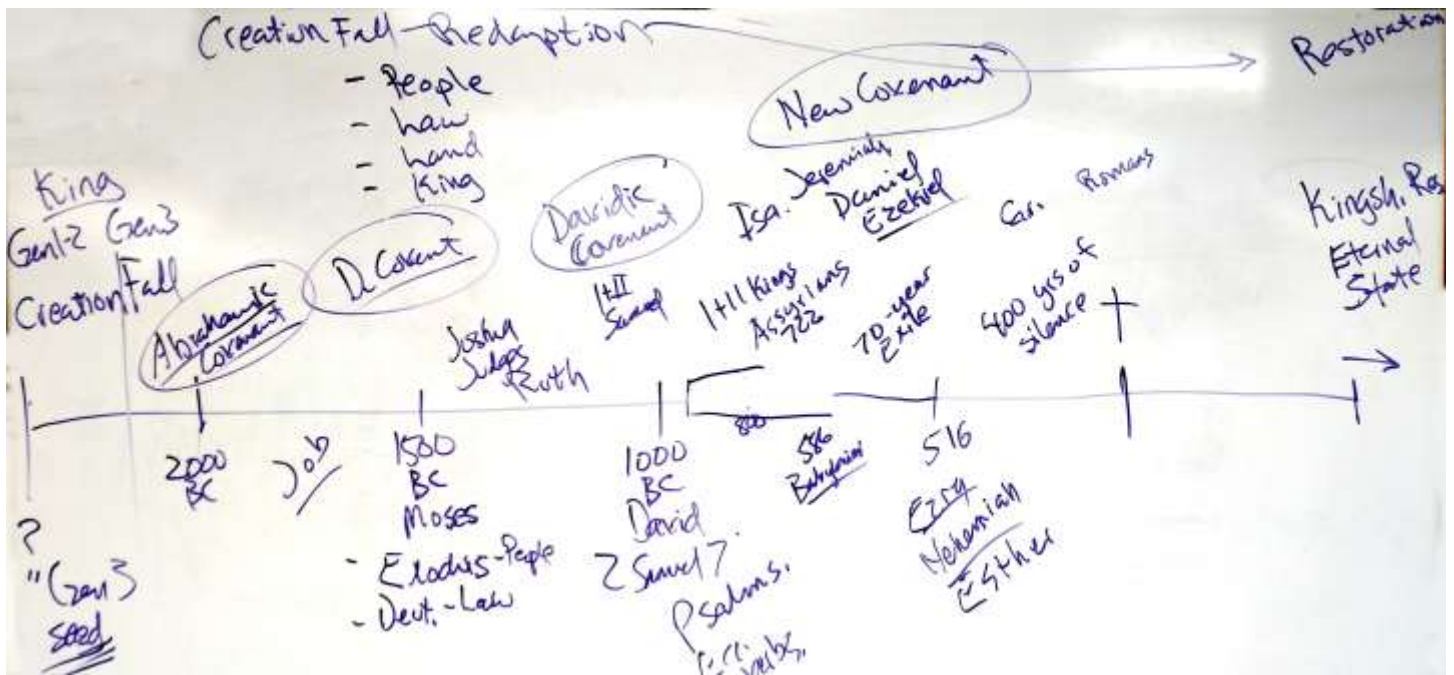 Creation Fall - Redemption
Restoration
- People
- Law
- Land
- King
New Covenant
King
Gen 1-2 Gen 3
Creation Fall
Abrahamic
Covenant
D. Covent
Davidic
Covenant
Isa. Jeremiah
Daniel
Ezekiel
Romans
Eternal
State
Joshua
Judges
Ruth
I+II
I+II Kings
Assyrians
722
70-year
Exile
400 yrs of
silence
2000
BC
Job
1500
BC
Moses
- Exodus - People
- Deut. - Law
1000
BC
David
2 Samuel 7.
Psalms.
800
586
516
Ezra
Nehemiah
Esther
?
"Gen 3
seed